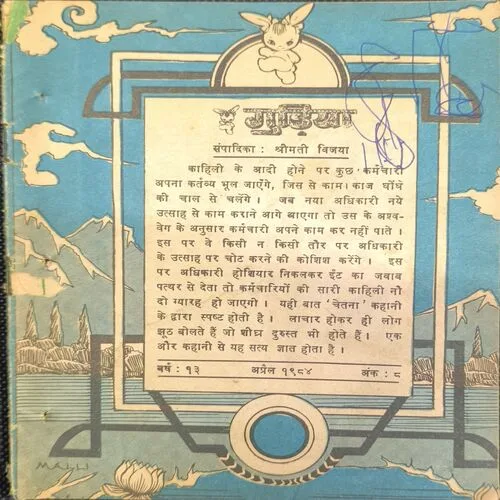 गुड़िया
संपादिका : श्रीमती विजया
काहिली के आदी होने पर कुछ कर्मचारी
अपना कर्तव्य भूल जाएँगे, जिस से काम-काज घोंघे
की चाल से चलेंगे । जब नया अधिकारी नये
उत्साह से काम कराने आगे आएगा तो उस के अश्व-
वेग के अनुसार कर्मचारी अपने काम कर नहीं पाते ।
इस पर वे किसी न किसी तौर पर अधिकारी
के उत्साह पर चोट करने की कोशिश करेंगे । इस
पर अधिकारी होशियार निकलकर ईंट का जवाब
पत्थर से देता तो कर्मचारियों की सारी काहिली नौ
दो ग्यारह हो जाएगी । यही बात 'चेतना' कहानी
के द्वारा स्पष्ट होती है । लाचार होकर ही लोग
झूठ बोलते हैं जो शीघ्र दुरुस्त भी होते हैं । एक
और कहानी से यह सत्य ज्ञात होता है ।
वर्ष : १३ अप्रैल १९८४ अंक : ८
MALLI